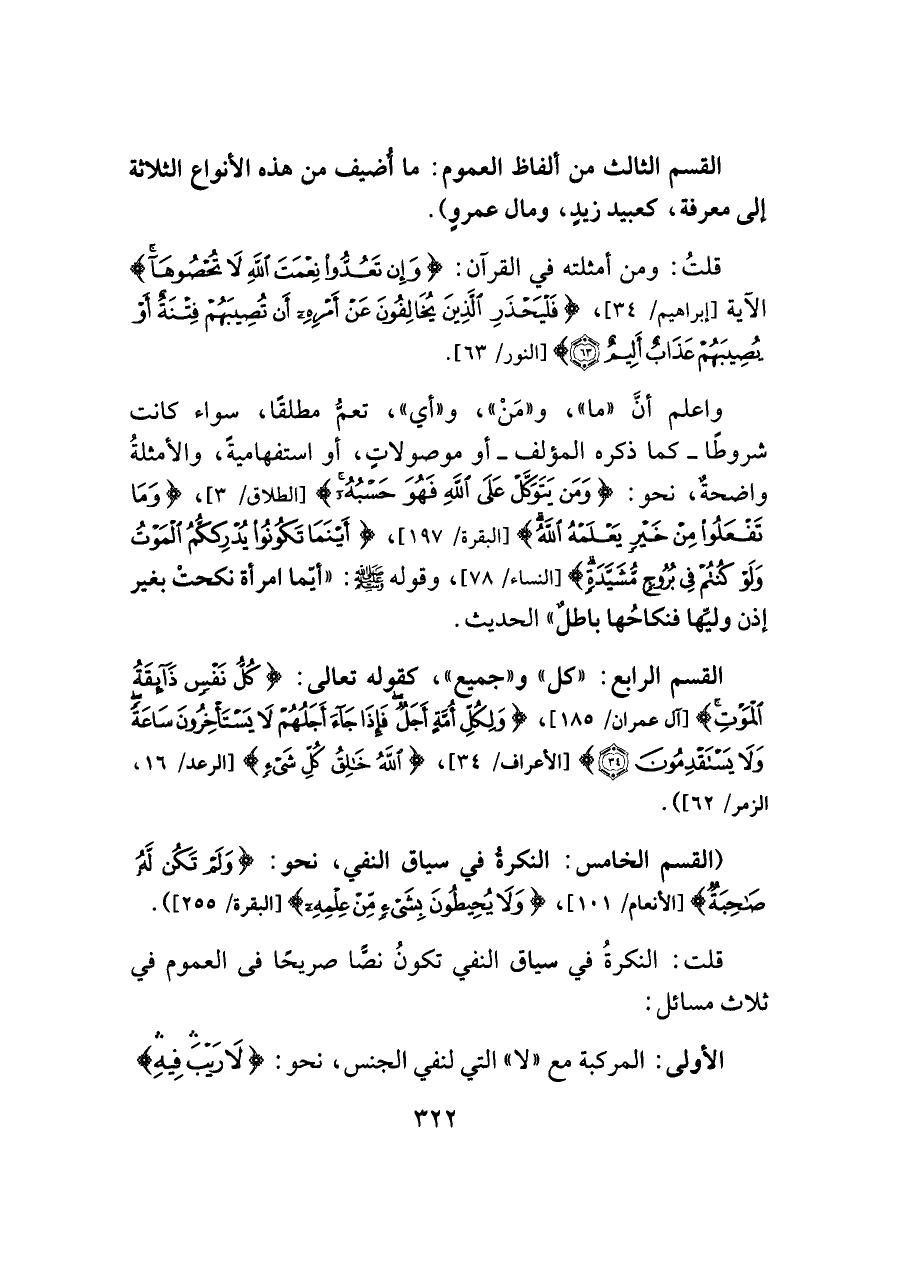 القسم الثالث من ألفاظ العموم: ما أُضيف من هذه الأنواع الثلاثة
إلى معرفة، كعبيد زيدٍ، ومال عمروٍ).
قلتُ: ومن أمثلته في القرآن: ﴿وَإِن تَعُدُّوا۟ نِعْمَتَ ٱللَّهِ لَا تُحْصُوهَآ ۗ﴾
الآية [إبراهيم/ ٣٤]، ﴿فَلْيَحْذَرِ ٱلَّذِينَ يُخَالِفُونَ عَنْ أَمْرِهِۦٓ أَن تُصِيبَهُمْ فِتْنَةٌ أَوْ
يُصِيبَهُمْ عَذَابٌ أَلِيمٌ ٦٣﴾ [النور/ ٦٣].
واعلم أنَّ «ما»، و«مَنْ»، و«أي»، تعمُّ مطلقًا، سواء كانت
شروطًا ـ كما ذكره المؤلف ـ أو موصولاتٍ، أو استفهاميةً، والأمثلةُ
واضحةٌ، نحو: ﴿وَمَن يَتَوَكَّلْ عَلَى ٱللَّهِ فَهُوَ حَسْبُهُۥٓ ۚ﴾ [الطلاق/ ٣]، ﴿وَمَا
تَفْعَلُوا۟ مِنْ خَيْرٍ يَعْلَمْهُ ٱللَّهُ ۗ﴾ [البقرة/ ١٩٧]، ﴿أَيْنَمَا تَكُونُوا۟ يُدْرِككُّمُ ٱلْمَوْتُ
وَلَوْ كُنتُمْ فِى بُرُوجٍ مُّشَيَّدَةٍ ۗ﴾ [النساء/ ٧٨]، وقوله ﷺ: «أيّما امرأة نكحتْ بغير
إذن وليّها فنكاحُها باطلٌ» الحديث.
القسم الرابع: «كل» و«جميع»، كقوله تعالى: ﴿كُلُّ نَفْسٍ ذَآئِقَةُ
ٱلْمَوْتِ ۗ﴾ [آل عمران/ ١٨٥]، ﴿وَلِكُلِّ أُمَّةٍ أَجَلٌ ۖ فَإِذَا جَآءَ أَجَلُهُمْ لَا يَسْتَأْخِرُونَ سَاعَةً ۖ
وَلَا يَسْتَقْدِمُونَ ٣٤﴾ [الأعراف/ ٣٤]، ﴿ٱللَّهُ خَـٰلِقُ كُلِّ شَىْءٍ﴾ [الرعد/ ١٦،
الزمر/ ٦٢]).
(القسم الخامس: النكرةُ في سياق النفي، نحو: ﴿وَلَمْ تَكُن لَّهُۥ
صَـٰحِبَةٌ ۖ﴾ [الأنعام/ ١٠١]، ﴿وَلَا يُحِيطُونَ بِشَىْءٍ مِّنْ عِلْمِهِۦٓ﴾ [البقرة/ ٢٥٥]).
قلت: النكرةُ في سياق النفي تكونُ نصًّا صريحًا فى العموم في
ثلاث مسائل:
الأولى: المركبة مع «لا» التي لنفي الجنس، نحو: ﴿لَا رَيْبَ ۛ فِيهِ ۛ﴾
٣٢٢